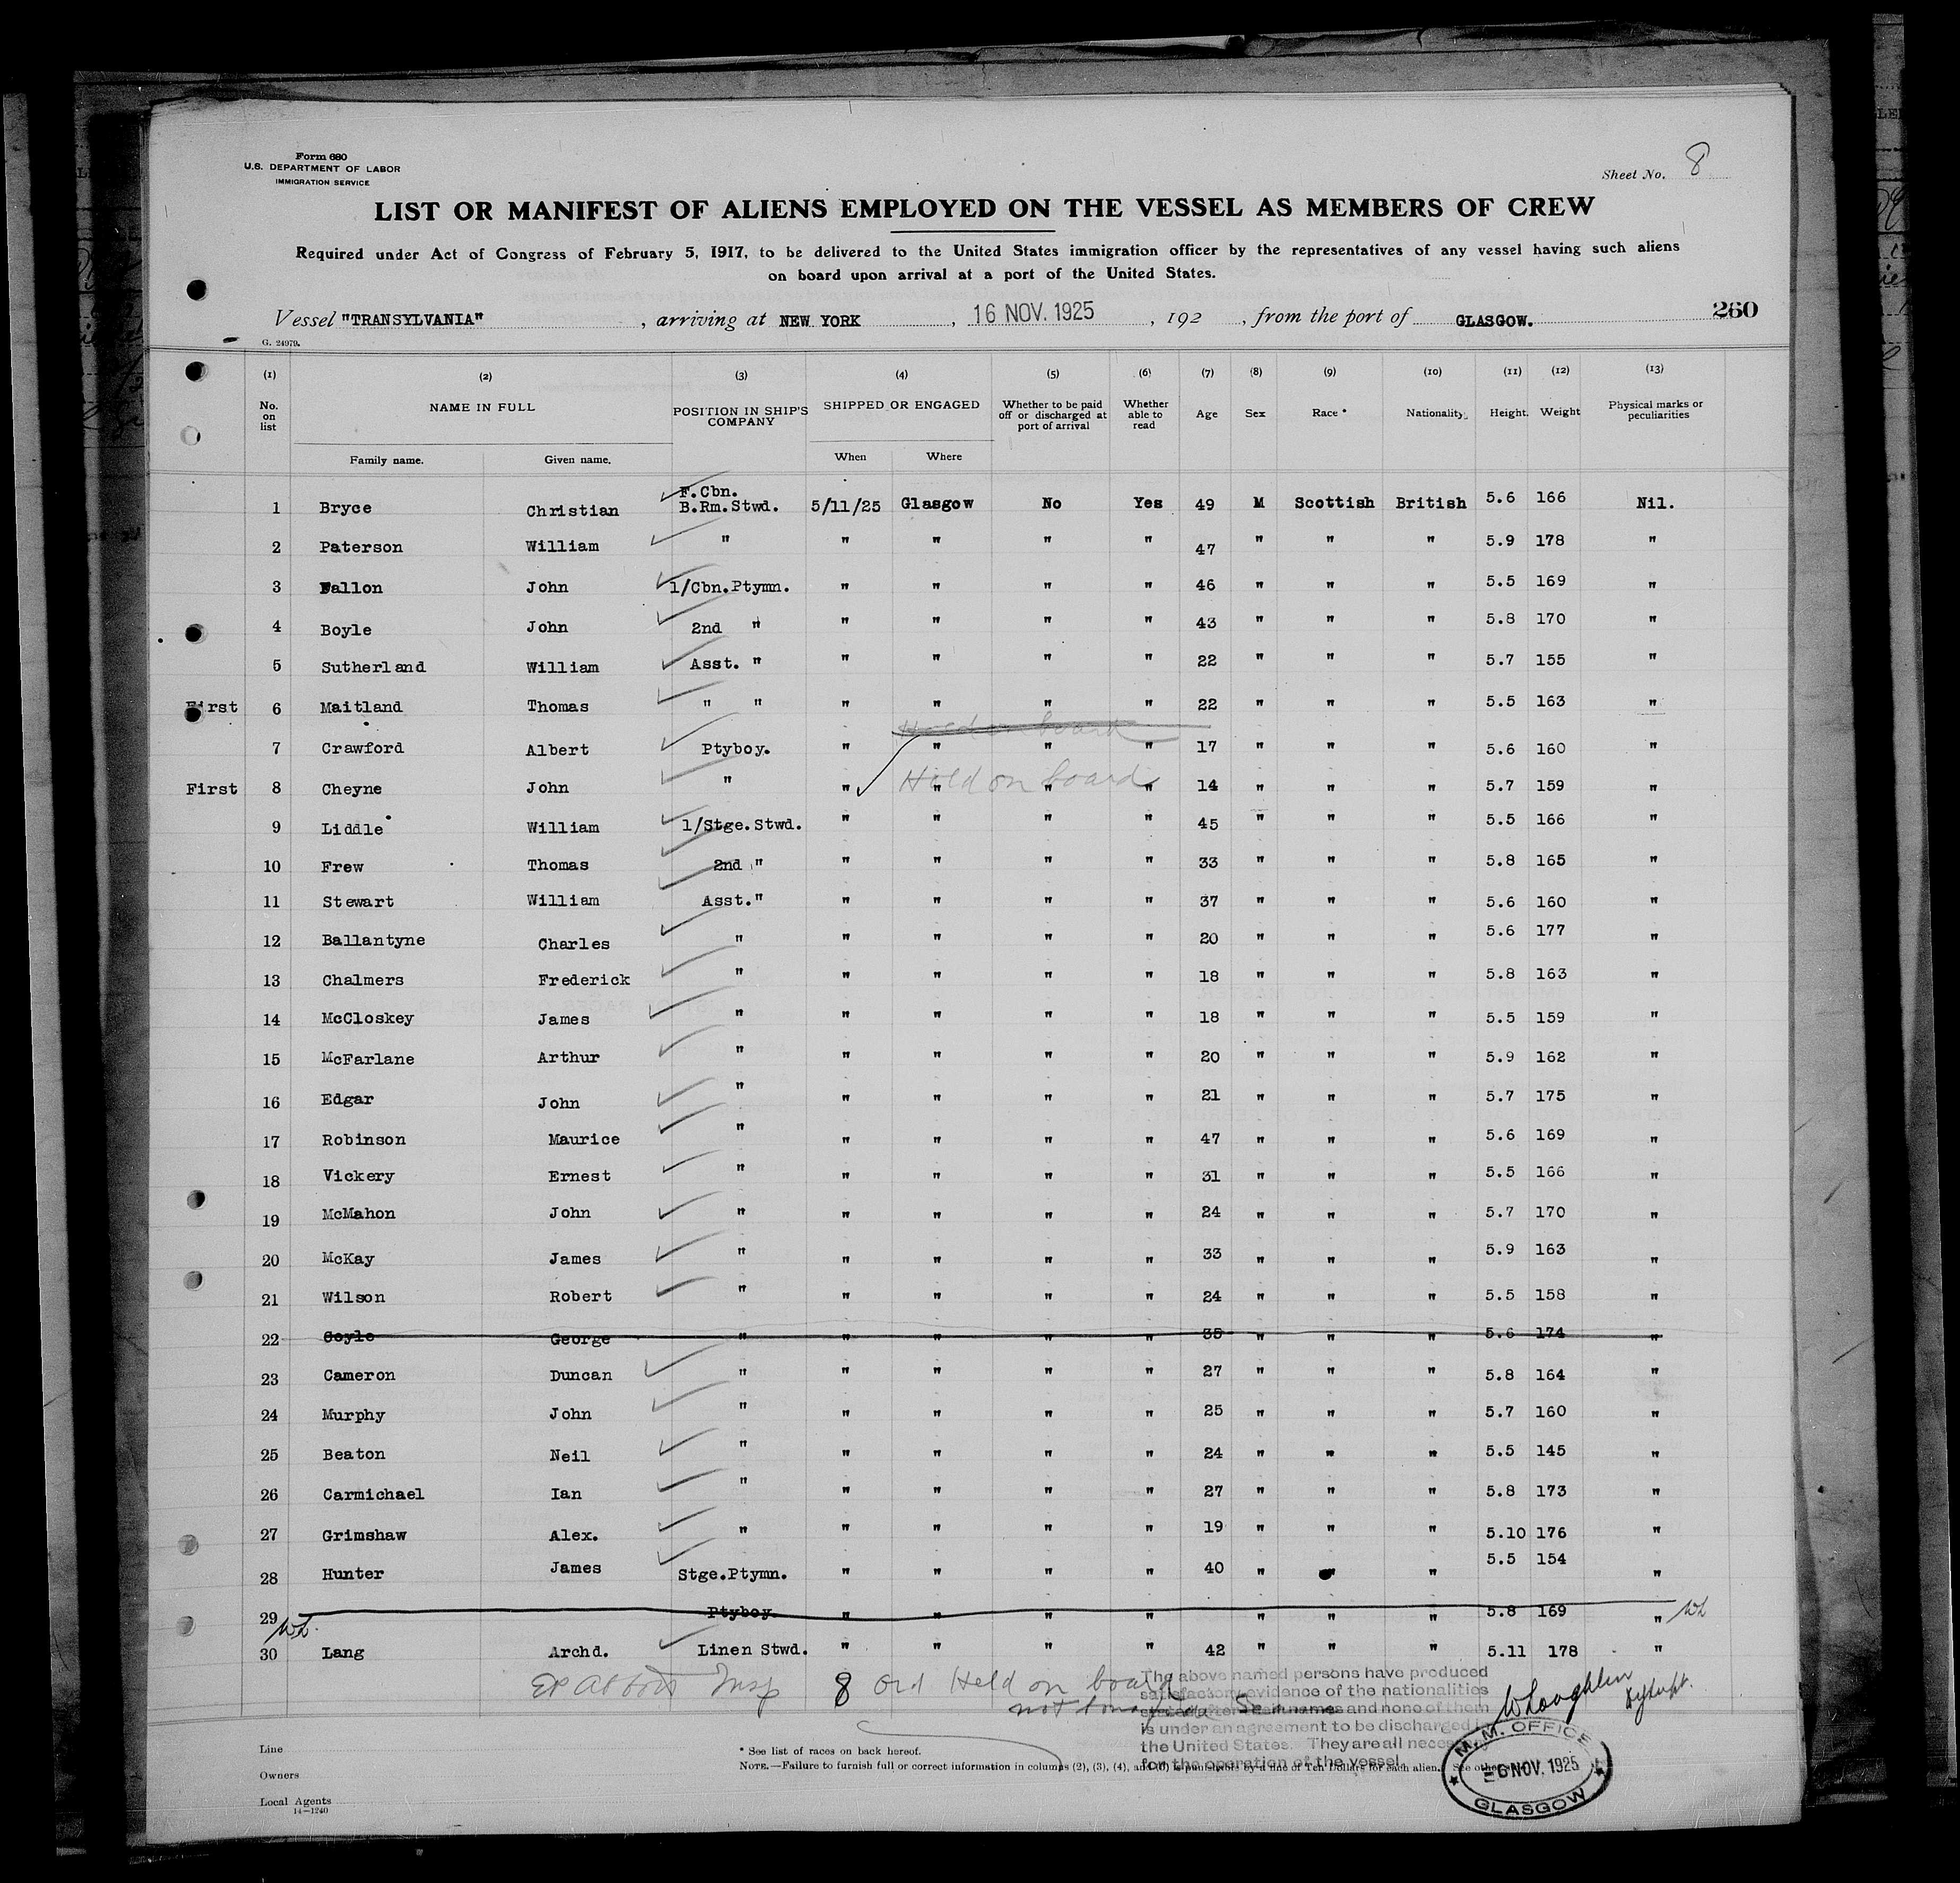 Form 680
U.S. DEPARTMENT OF LABOR
IMMIGRATION SERVICE
Sheet No. 8
LIST OR MANIFEST OF ALIENS EMPLOYED ON THE VESSEL AS MEMBERS OF CREW
Required under Act of Congress of February 5, 1917, to be delivered to the United States immigration officer by the representatives of any vessel having such aliens
on board upon arrival at a port of the United States.
Vessel "TRANSYLVANIA" , arriving at NEW YORK , 16 NOV. 1925 , 192 , from the port of GLASGOW. 260
G. 24979.
(1) (2) (3) (4) (5) (6) (7) (8) (9) (10) (11) (12) (13)
No. on list NAME IN FULL POSITION IN SHIP'S COMPANY SHIPPED OR ENGAGED Whether to be paid off or discharged at port of arrival Whether able to read Age Sex Race * Nationality Height. Weight Physical marks or peculiarities
Family name. Given name. When Where
1 Bryce Christian F.Cbn. B.Rm.Stwd. 5/11/25 Glasgow No Yes 49 M Scottish British 5.6 166 Nil.
2 Paterson William " " " " " 47 " " " 5.9 178 "
3 Fallon John 1/Cbn.Ptymn. " " " " 46 " " " 5.5 169 "
4 Boyle John 2nd " " " " " 43 " " " 5.8 170 "
5 Sutherland William Asst. " " " " " 22 " " " 5.7 155 "
First 6 Maitland Thomas " " " " " " 22 " " " 5.5 163 "
Held on board
7 Crawford Albert Ptyboy. " " " " 17 " " " 5.6 160 "
Held on board
First 8 Cheyne John " " " " " 14 " " " 5.7 159 "
9 Liddle William 1/Stge.Stwd. " " " " 45 " " " 5.5 166 "
10 Frew Thomas 2nd " " " " " 33 " " " 5.8 165 "
11 Stewart William Asst." " " " " 37 " " " 5.6 160 "
12 Ballantyne Charles " " " " " 20 " " " 5.6 177 "
13 Chalmers Frederick " " " " " 18 " " " 5.8 163 "
14 McCloskey James " " " " " 18 " " " 5.5 159 "
15 McFarlane Arthur " " " " " 20 " " " 5.9 162 "
16 Edgar John " " " " " 21 " " " 5.7 175 "
17 Robinson Maurice " " " " " 47 " " " 5.6 169 "
18 Vickery Ernest " " " " " 31 " " " 5.5 166 "
19 McMahon John " " " " " 24 " " " 5.7 170 "
20 McKay James " " " " " 33 " " " 5.9 163 "
21 Wilson Robert " " " " " 24 " " " 5.5 158 "
22 Coyle George " " " " " 35 " " " 5.6 174 "
23 Cameron Duncan " " " " " 27 " " " 5.8 164 "
24 Murphy John " " " " " 25 " " " 5.7 160 "
25 Beaton Neil " " " " " 24 " " " 5.5 145 "
26 Carmichael Ian " " " " " 27 " " " 5.8 173 "
27 Grimshaw Alex. " " " " " 19 " " " 5.10 176 "
28 Hunter James Stge.Ptymn. " " " " 40 " " " 5.5 154 "
29 Ptyboy. " " " " " " " 5.8 169 "
30 Lang Archd. Linen Stwd. " " " " 42 " " " 5.11 178 "
Insp 8 Ord Held on board
not bona fide Seaman
The above named persons have produced
satisfactory evidence of the nationalities
stated after their names and none of them
is under an agreement to be discharged in
the United States. They are all necessary
for the operation of the vessel.
Line
Owners
Local Agents
14—1240
* See list of races on back hereof.
NOTE.—Failure to furnish full or correct information in columns (2), (3), (4), and is punishable by a fine of Ten Dollars for each alien. See other
M.M. OFFICE
6 NOV. 1925
GLASGOW